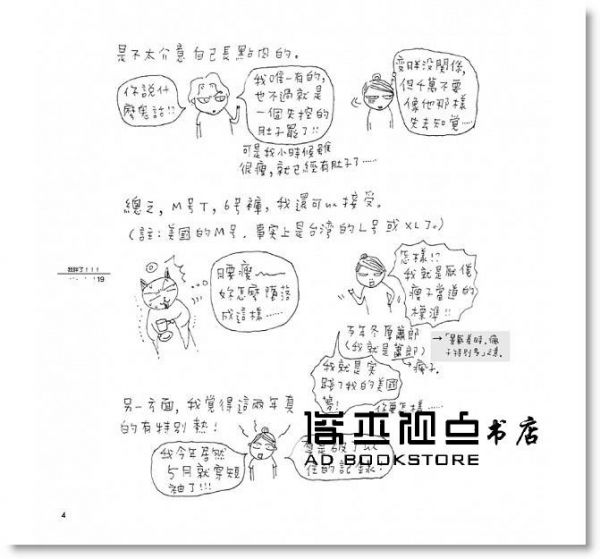 是不太介意自己長點肉的。
你說什
麼鬼話!!
我唯一有的,
也不過就是
一個失控的
肚子罷了!!
變胖沒關係,
但千萬不要
像他那樣
失去知覺……
可是我小時候雖
很瘦,就已經有肚子了……
總之,M号T,6号褲,我還可以接受。
(註:美國的M号,事實上是台灣的L号或XL了。)
我胖了!!!
19
腰瘦
妳怎麼墮落
成這樣……
怎樣!?
我就是厭倦
瘦子當道的
標準!!
(我就是
→瘦子。
我就是實
踐了我的美國
夢!
另一方面,我覺得這兩年真
的有特別熱!
我今年居然
5月就穿短
袖了!!!
書店
AD BOOKSTORE
4